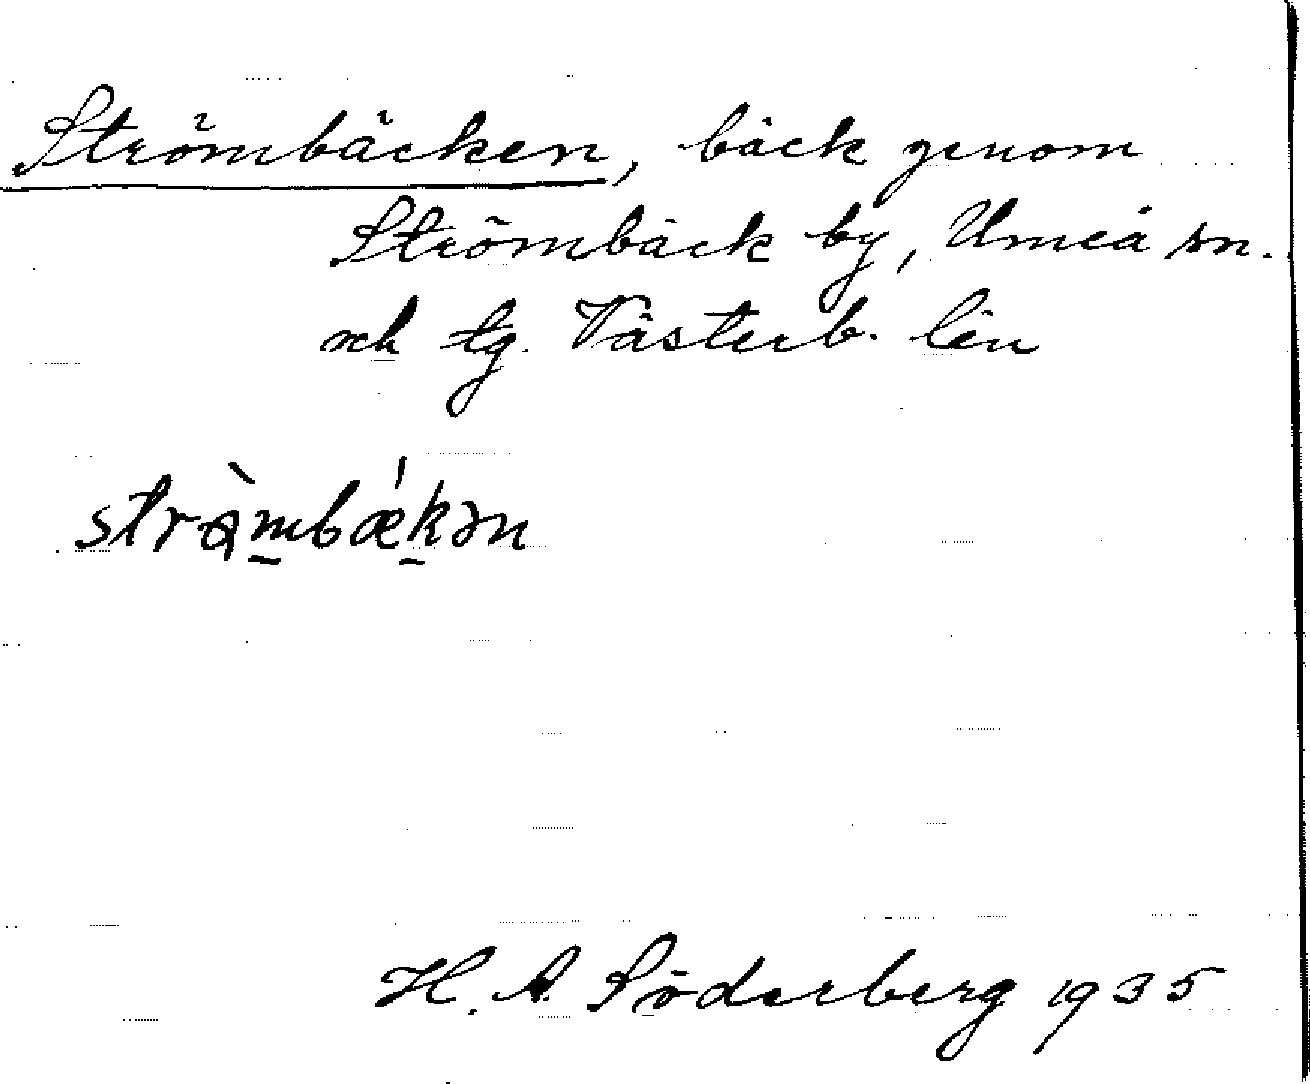 Strömbäcken, bäck genom
Strömbäck by, Umeå sn.
och tg. Västerb. län
strö̀mbǽkən
H. A. Söderberg 1935